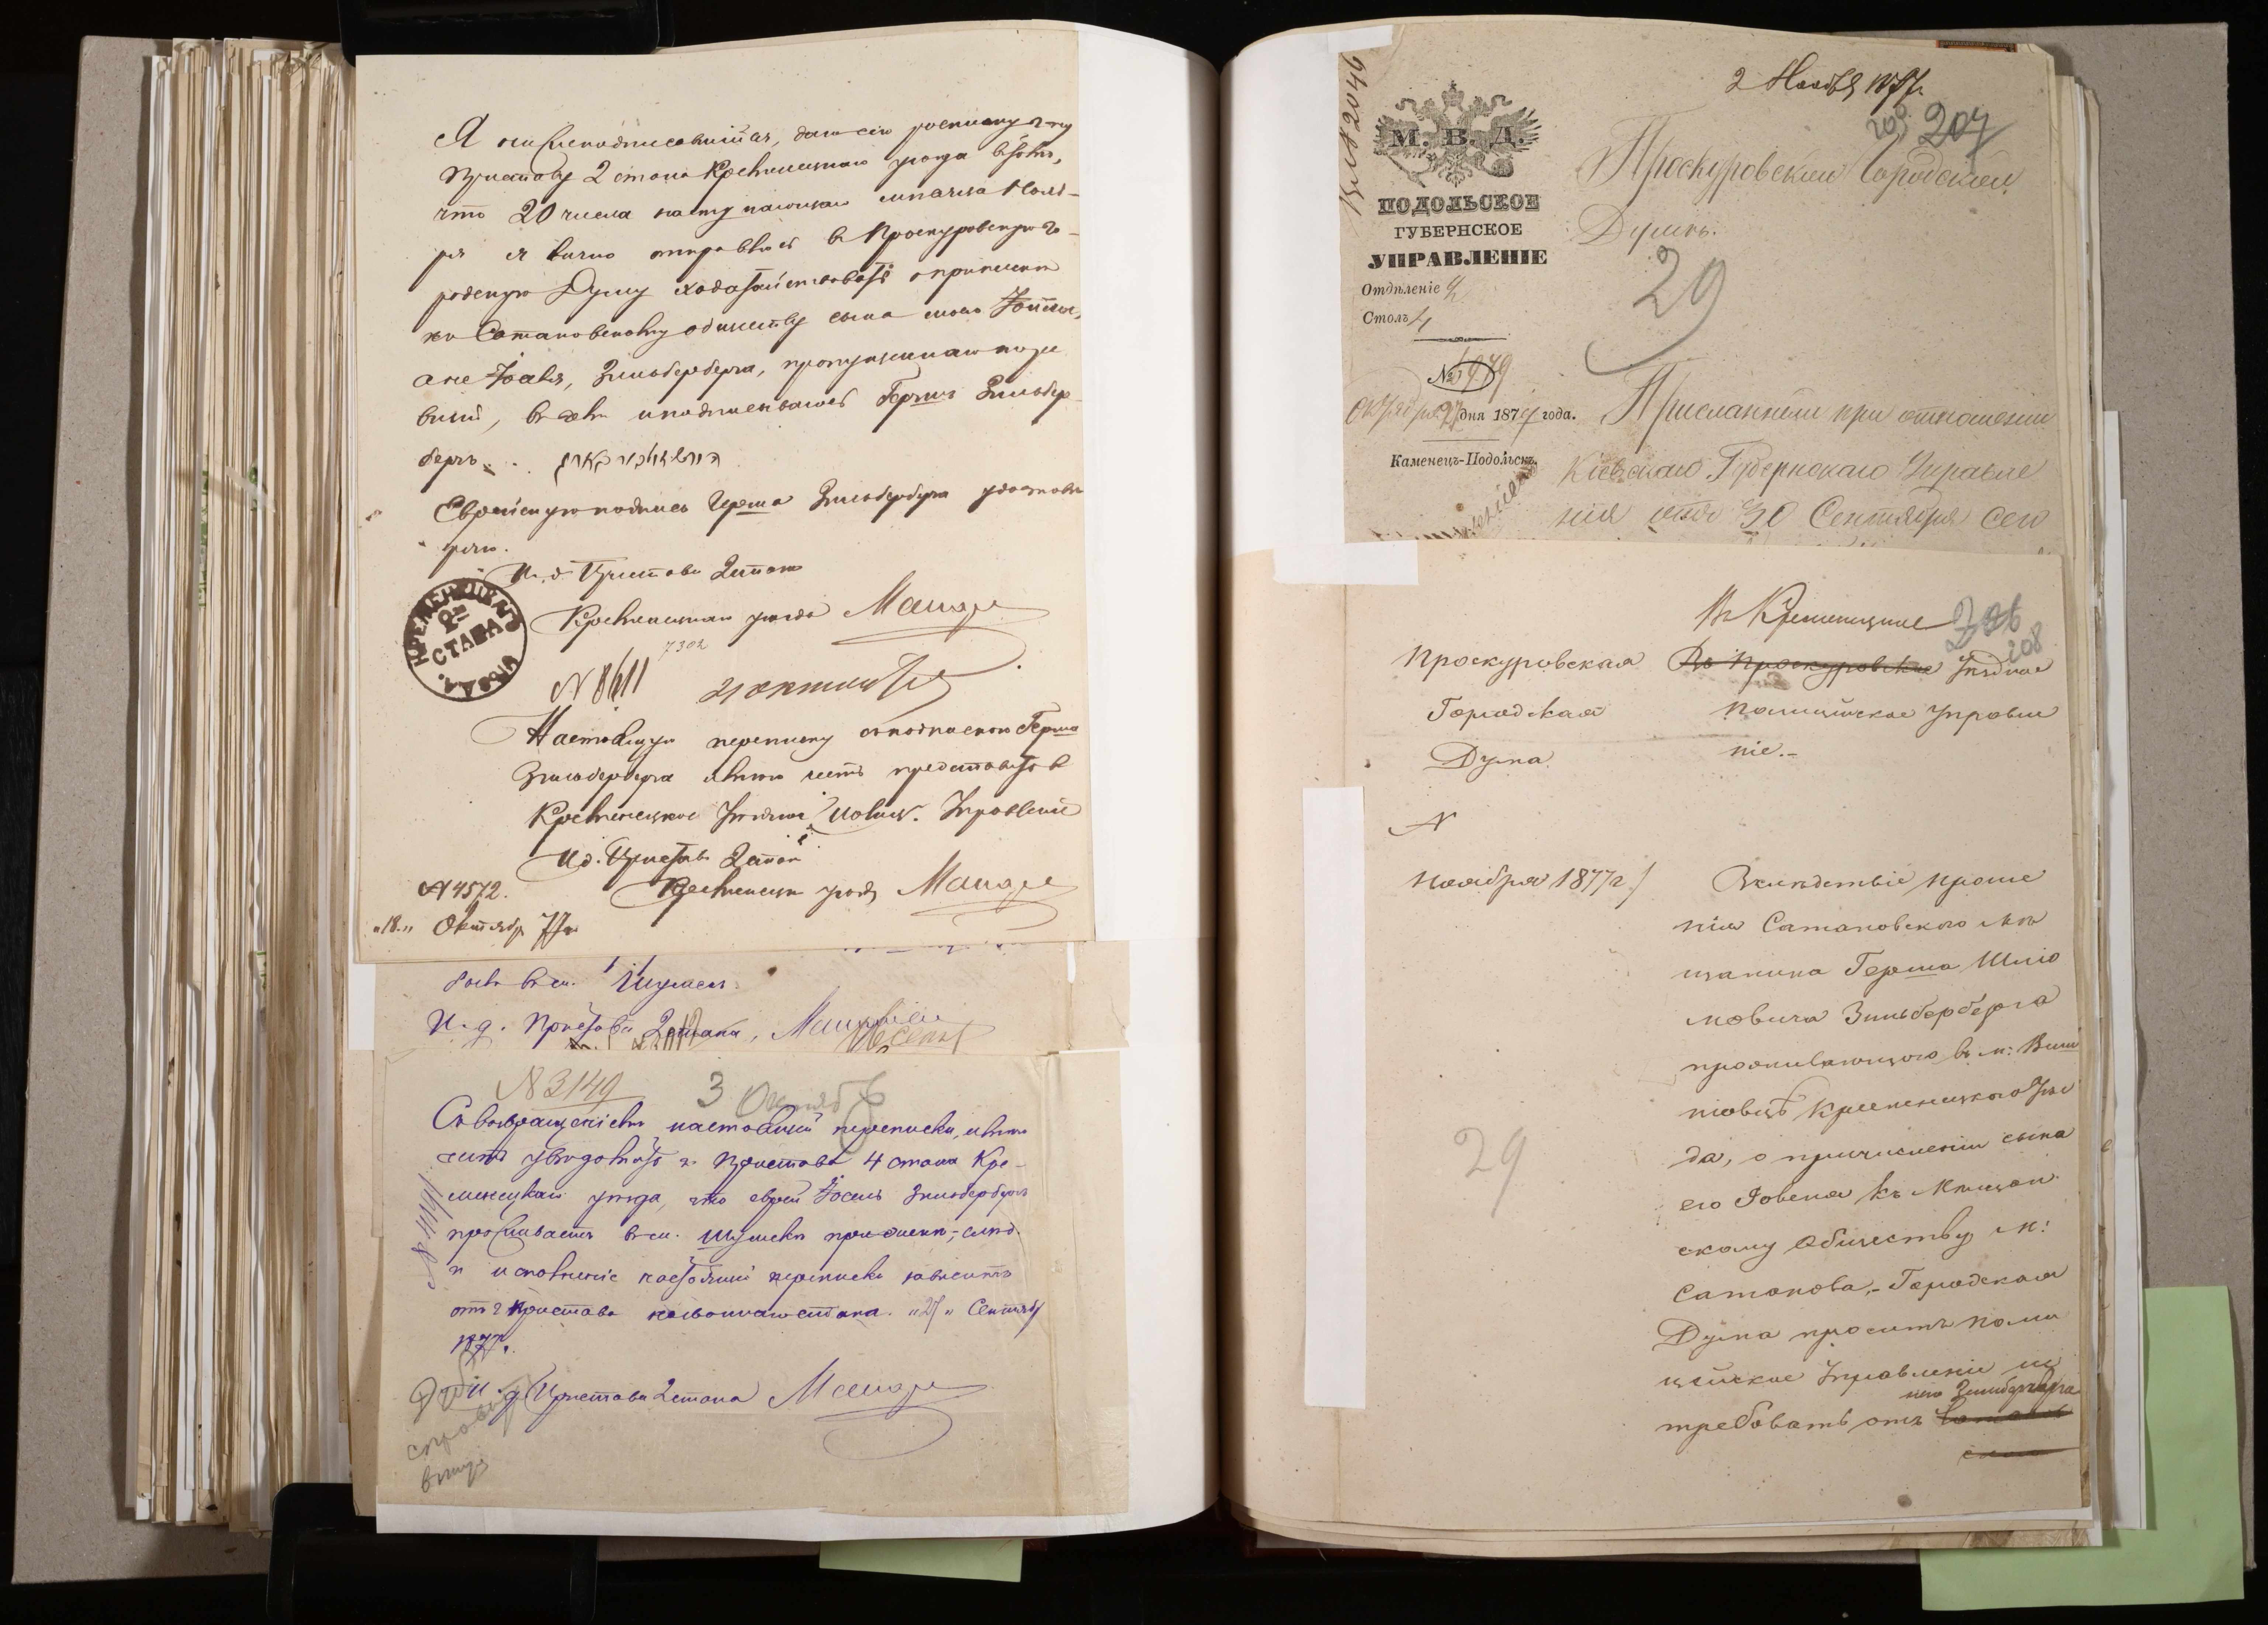 Я нижеподписавшійся, даю сію росписку г-ну
Приставу 2 стана Кременецкаго уѣзда въ томъ,
что 20 числа наступающаго мѣсяца Нояб-
ря я лично отправлюсь въ Проскуровскую Го-
родскую Думу ходатайствовать о припискѣ
къ Сатановскому обществу сына моего
Зильберберга, пропущеннаго по ре
визіи, въ чемъ и подписываюсь Гершъ Зильбер
бергъ
Еврейскую подпись Герша Зильберберга удостовѣ
ряю.
И. д. Пристава 2 стана
Кременецкаго уѣзда
КРЕМЕНЕЦКАГО УѢЗДА
2го
СТАНА
7302
N 8611 21 октября
Настоящую переписку съ подпискою Герша
Зильберберга имѣю честь представить въ
Кременецкое Уѣздное Полиц. Управленіе
И. д. Пристава 2 стана
Кременецк. уѣзда
N 4572.
"18" Октября 77 г.
въ м. Шумскъ.
И. д. Пристава 2 стана,
N 3149 3 Октяб
Съ возвращеніемъ настоящей переписки, имѣю
честь увѣдомить г. Пристава 4 стана Кре-
менецкаго уѣзда, что еврей Іосель Зильбербергъ
проживаетъ въ м.
и исполненіе настоящей переписки зависитъ
отъ г. Пристава стана. "27" Сентяб
1877 г.
И. д. Пристава 2 стана
2 Ноября 1877 г.
209 207
Вх. N 2046
М. В. Д.
ПОДОЛЬСКОЕ
ГУБЕРНСКОЕ
УПРАВЛЕНІЕ
Отдѣленіе 2
Столъ 4
№ 5979
Октября 27 дня 1877 года.
Каменецъ-Подольскъ.
Проскуровской Городской
Думѣ.
29
Присланный при отношеніи
Кіевскаго Губернскаго Управле
нія отъ 30 Сентября сего
206
208
Проскуровская
Городская
Дума
N
Ноября 1877 г.
Въ Кременецкое
Въ Проскуровское Уѣздное
Полицейское Управле
ніе.-
Вслѣдствіе проше
нія Сатановскаго мѣ
щанина Герша Шліо
мовича Зильберберга
проживающаго въ м: Виш
ніовцѣ Кременецкаго Уѣз
да, о причисленіи сына
его Іовеля къ Мѣщан
скому Обществу м:
Сатанова,- Городская
Дума проситъ Поли
цейское Управленіе ис
него Зильберберга
требовать отъ
29